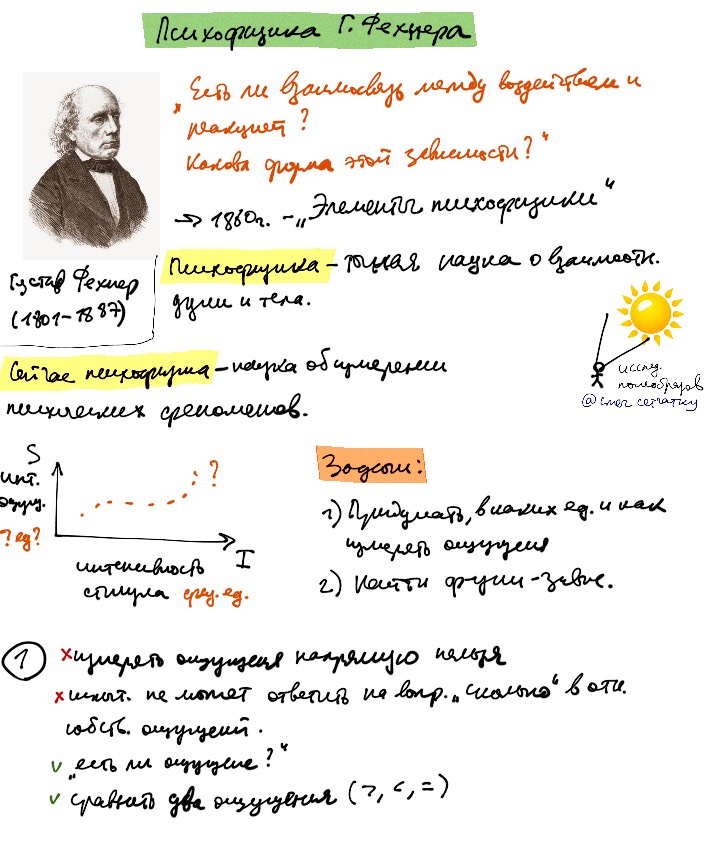 Психофизика Г. Фехнера
„Есть ли взаимосвязь между воздействием и
реакцией?
Какова форма этой зависимости?“
→ 1860г. – „Элементы психофизики“
Густав Фехнер
(1801–1887)
Психофизика – точная наука о взаимоотн.
души и тела.
исслед.
послеобразов
@ сжёг сетчатку
Сейчас психофизика – наука об измерении
психических феноменов.
S
инт.
ощущ.
? ед?
?
I
интенсивность
стимула физ. ед.
Задачи:
1) Придумать, в каких ед. и как
измерять ощущения
2) Найти функц. завис.
1
× измерять ощущения напрямую нельзя
× испыт. не может ответить на вопр. „сколько“ в отн.
собств. ощущений.
v „есть ли ощущение?“
v сравнить два ощущения (>, <, =)